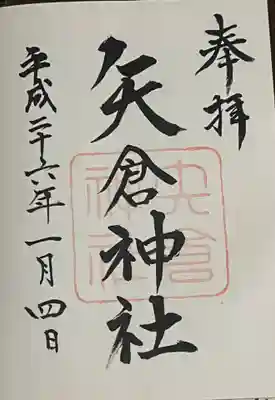 奉拝
矢倉神社
平成二十六年一月四日
矢倉
神社